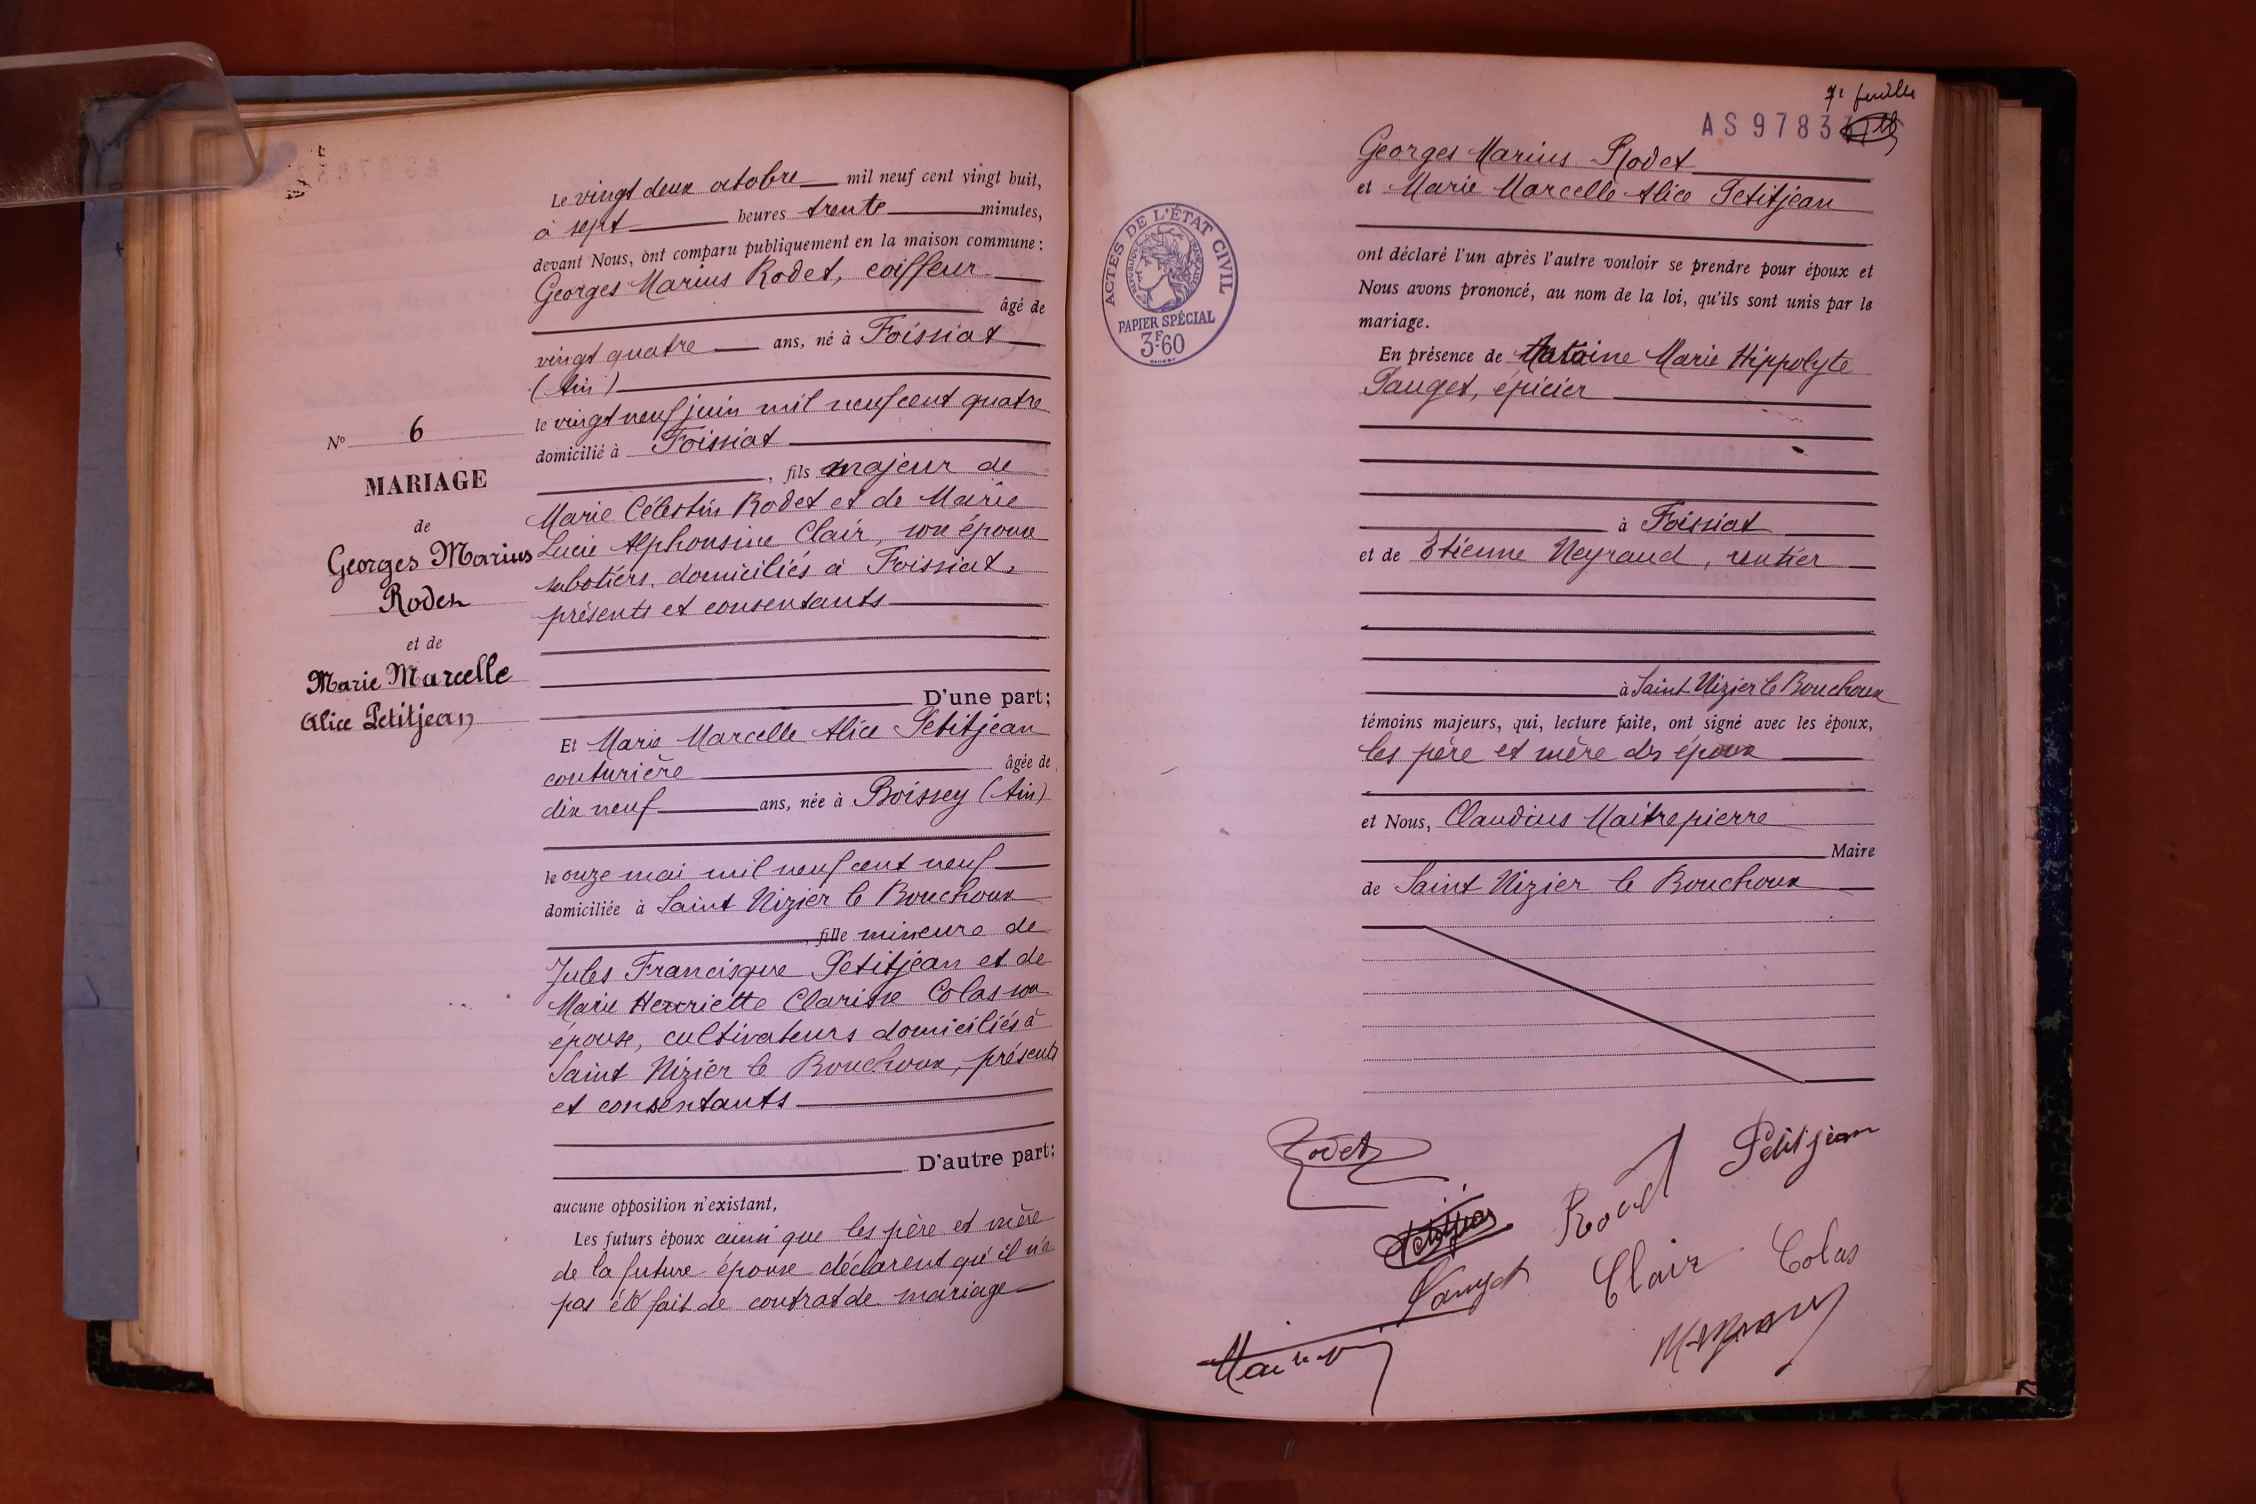 Le vingt deux octobre mil neuf cent vingt huit,
à sept heures trente minutes,
devant Nous, ont comparu publiquement en la maison commune:
Georges Marius Rodet, coiffeur
âgé de
vingt quatre ans, né à Foissiat
(Ain)
le vingt neuf juin mil neuf cent quatre
domicilié à Foissiat
, fils majeur de
Marie Célestin Rodet et de Marie
Lucie Alphonsine Clair, son épouse
sabotiers, domiciliés à Foissiat,
présents et consentants
D'une part;
Et Marie Marcelle Alice Petitjean
couturière âgée de
dix neuf ans, née à Boissey (Ain)
le onze mai mil neuf cent neuf
domiciliée à Saint Nizier le Bouchoux
, fille mineure de
Jules Francisque Petitjean et de
Marie Henriette Clarisse Colas son
épouse, cultivateurs domiciliés à
Saint Nizier le Bouchoux, présents
et consentants
D'autre part;
aucune opposition n'existant,
Les futurs époux ainsi que les père et mère
de la future épouse déclarent qu'il n'a
pas été fait de contrat de mariage
N° 6
MARIAGE
de
Georges Marius
Rodet
et de
Marie Marcelle
Alice Petitjean
7e feuille
AS 9783
Georges Marius Rodet
et Marie Marcelle Alice Petitjean
ont déclaré l'un après l'autre vouloir se prendre pour époux et
Nous avons prononcé, au nom de la loi, qu'ils sont unis par le
mariage.
En présence de Antoine Marie Hippolyte
Pauget, épicier
à Foissiat
et de Etienne Neyraud, rentier
à Saint Nizier le Bouchoux
témoins majeurs, qui, lecture faite, ont signé avec les époux,
les père et mère des époux
et Nous, Claudius Maitrepierre
Maire
de Saint Nizier le Bouchoux
ACTES DE L'ÉTAT CIVIL
RÉPUBLIQUE FRANÇAISE
PAPIER SPÉCIAL
3F.60
Rodet
Petitjean
Petitjean
Rodet
Pauget
Clair
Colas